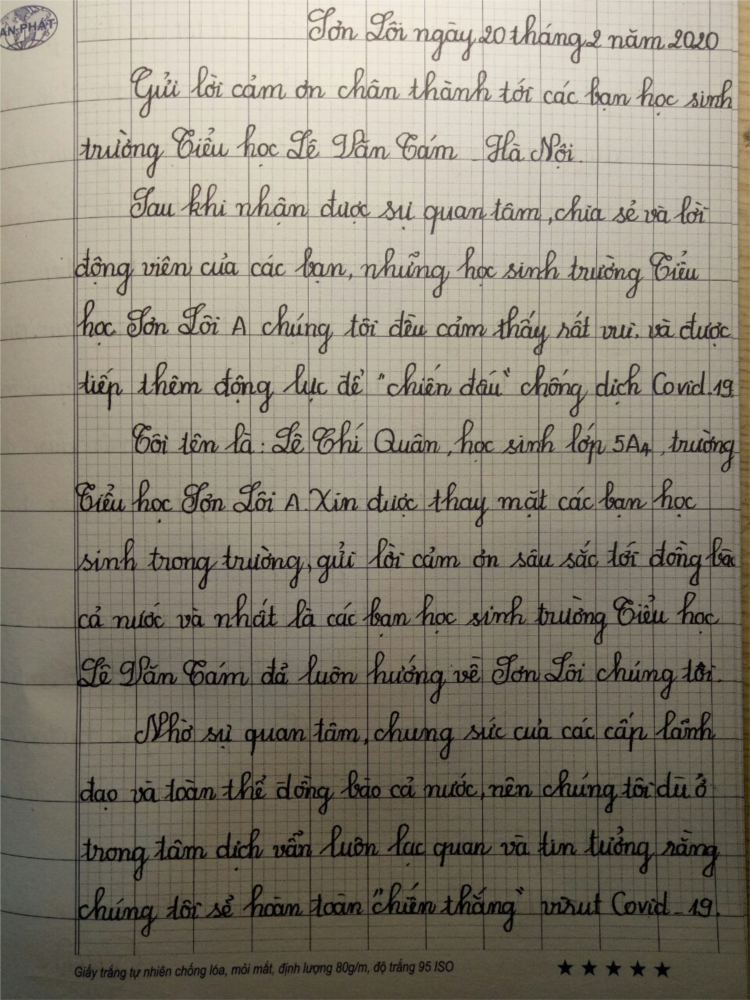 AN PHÁT
Sơn Lôi ngày 20 tháng 2 năm 2020
Gửi lời cảm ơn chân thành tới các bạn học sinh
trường Tiểu học Lê Văn Tám - Hà Nội.
Sau khi nhận được sự quan tâm, chia sẻ và lời
động viên của các bạn, những học sinh trường Tiểu
học Sơn Lôi A chúng tôi đều cảm thấy rất vui. và được
tiếp thêm động lực để "chiến đấu" chống dịch Covid-19
Tôi tên là: Lê Chí Quân, học sinh lớp 5A4, trường
Tiểu học Sơn Lôi A. Xin được thay mặt các bạn học
sinh trong trường, gửi lời cảm ơn sâu sắc tới đồng bào
cả nước và nhất là các bạn học sinh trường Tiểu học
Lê Văn Tám đã luôn hướng về Sơn Lôi chúng tôi.
Nhờ sự quan tâm, chung sức của các cấp lãnh
đạo và toàn thể đồng bào cả nước, nên chúng tôi dù ở
trong tâm dịch vẫn luôn lạc quan và tin tưởng rằng
chúng tôi sẽ hoàn toàn "chiến thắng" virut Covid-19.
Giấy trắng tự nhiên chống lóa, mỏi mắt, định lượng 80g/m, độ trắng 95 ISO